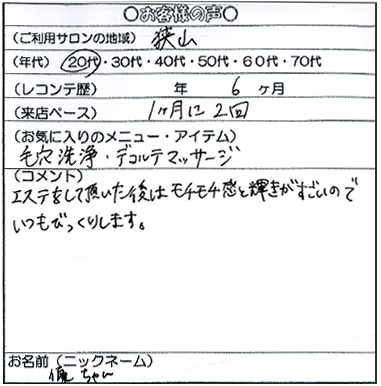 ○お客様の声○
(ご利用サロンの地域) 狭山
(年代) 20代・30代・40代・50代・60代・70代
(レコンテ歴) 年 6 ヶ月
(来店ペース) 1ヶ月に2回
(お気に入りのメニュー・アイテム)
毛穴洗浄・デコルテマッサージ
(コメント)
エステをして頂いた後はモチモチ感と輝きがすごいので
いつもびっくりします。
お名前 (ニックネーム)
ちゃん